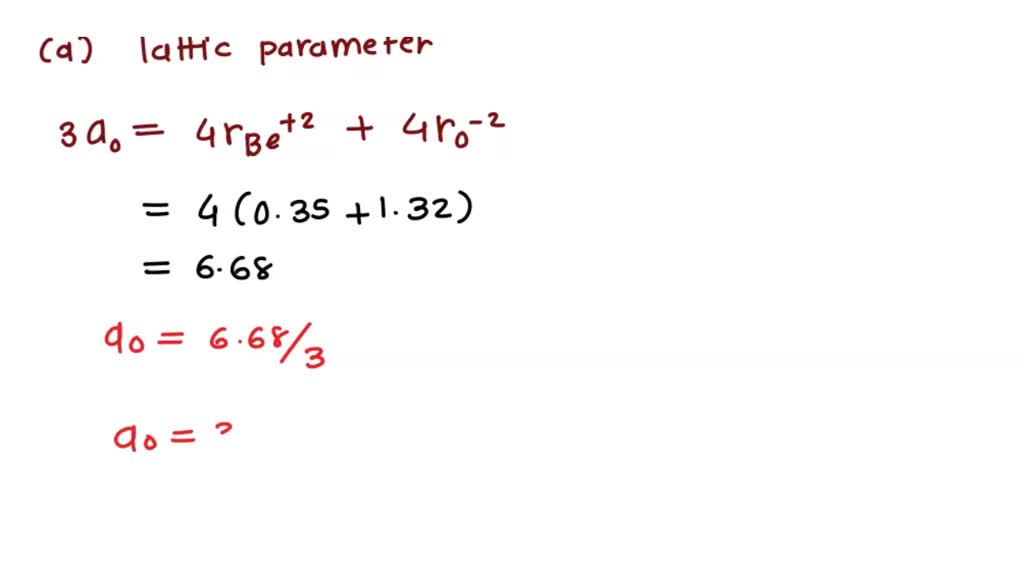 (a) lattic parameter
3a₀ = 4rBe⁺² + 4rO⁻²
= 4(0.35 + 1.32)
= 6.68
a₀ = 6.68/3
a₀ =